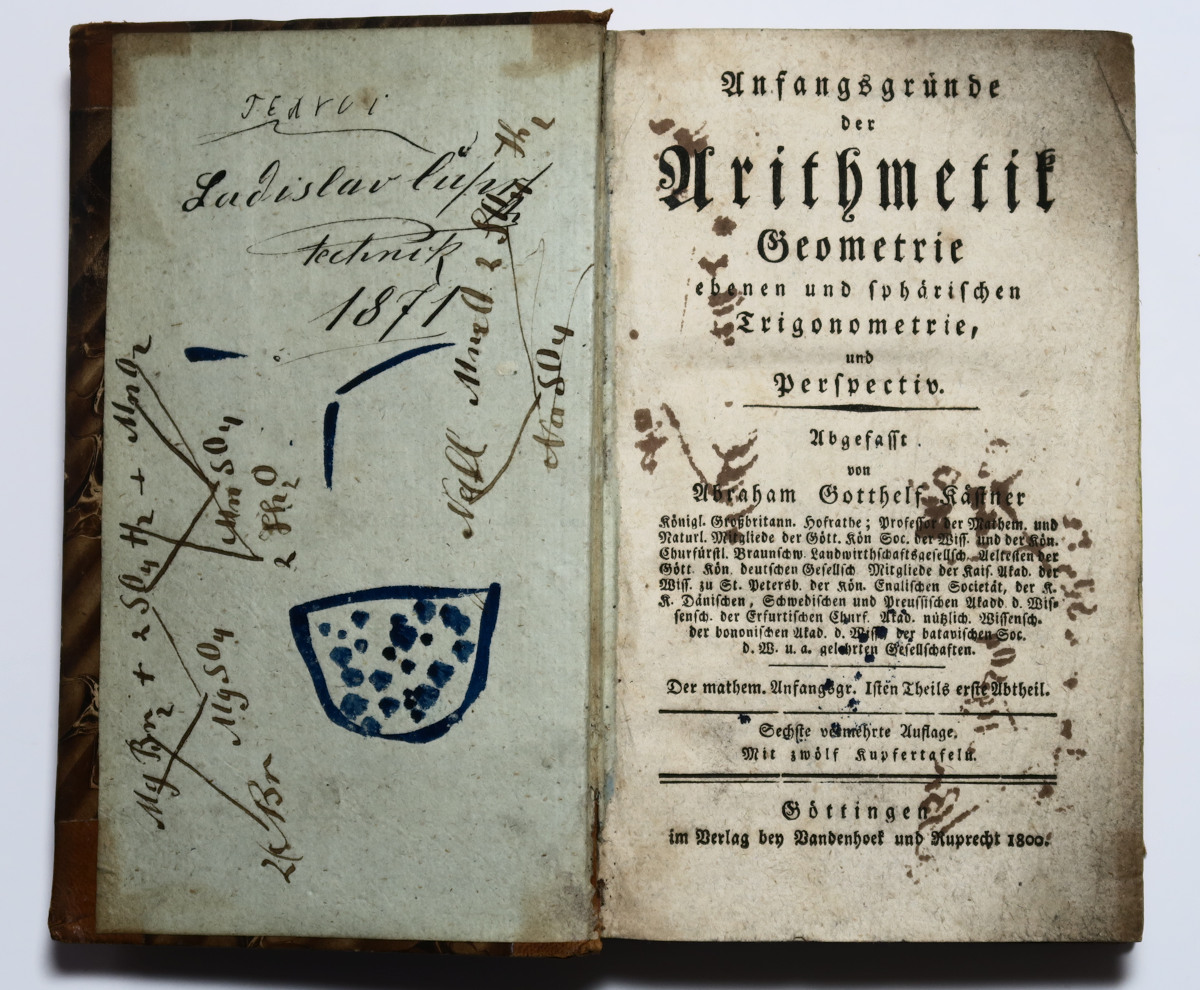 Ladislav
technik
1871
MnO2
MnSO4
MgBr2 + 2SO4H2 + MnO2
MgSO4
2Br
NaCl MnO2 2 SO4H2
NaSO4
Anfangsgründe
der
Arithmetik
Geometrie
ebenen und sphärischen
Trigonometrie,
und
Perspectiv.
Abgefasst
von
Abraham Gotthelf Kästner
Königl. Großbritann. Hofrathe; Professor der Mathem. und
Naturl. Mitgliede der Gött. Kön Soc. der Wiss. und der Kön.
Churfürstl. Braunschw. Landwirthschaftsgesellsch. Aeltesten der
Gött. Kön. deutschen Gesellsch Mitgliede der Kais. Akad. der
Wiss. zu St. Petersb. der Kön. Englischen Societät, der K.
K. Dänischen, Schwedischen und Preussischen Akadd. d. Wis-
sensch. der Erfurtischen Churf. Akad. nützlich. Wissensch.
der bononischen Akad. d. Wiss. der batavischen Soc.
d. W. u. a. gelehrten Gesellschaften.
Der mathem. Anfangsgr. Isten Theils erste Abtheil.
Sechste vermehrte Auflage.
Mit zwölf Kupfertafeln.
Göttingen
im Verlag bey Vandenhoek und Ruprecht 1800.